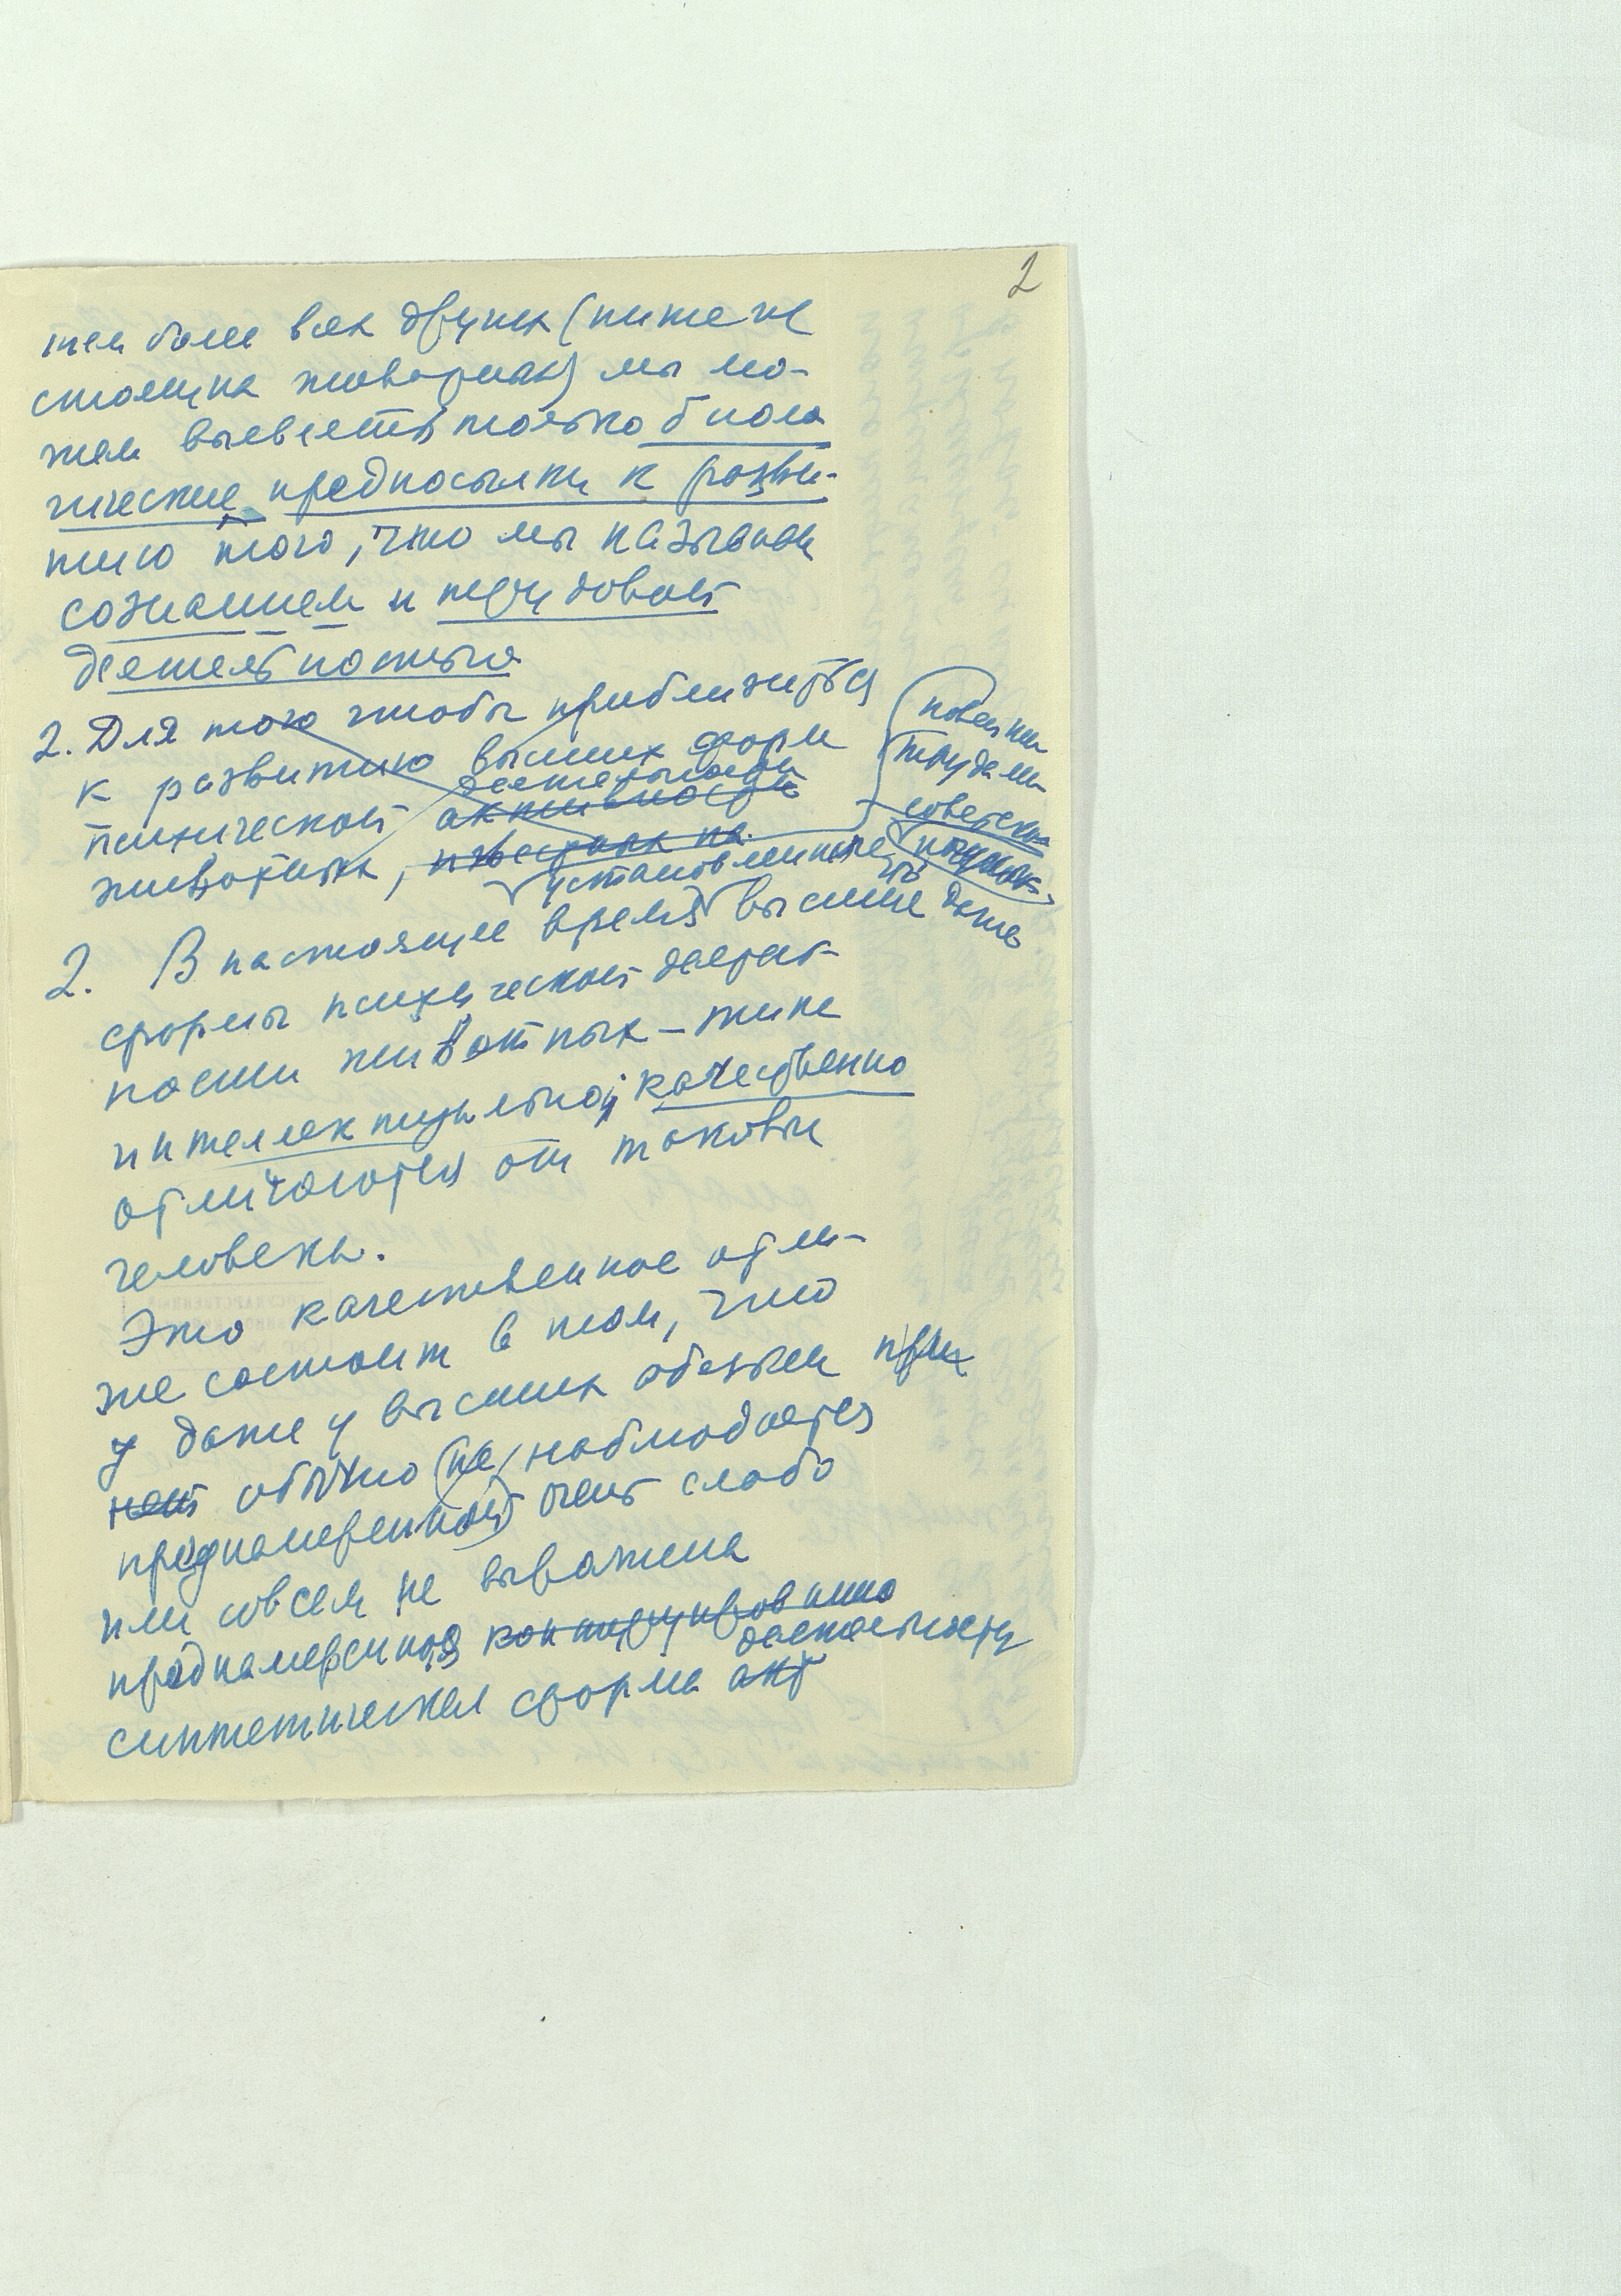 2
тем боле всех других (ниже не
стоящих животных) мы мо-
жем выявлять только биоло
гические предпосылки к разви-
тию того, что мы называем
сознанием и трудовой
деятельностью
2. Для того чтобы приблизиться
к развитию высших форм
психической активности
деятельности
животных, известных на
новейши
трудами
советских
установленно
что
2. В настоящее время высшие даже
формы психической деятель-
ности животных – типа
интеллектуальной качественно
отличаются от таковых
человека.
Это качественное отли-
чие состоит в том, что
у даже у высших обезьян при
нет обычно (не) наблюдается
преднамеренной очень слабо
или совсем не выражена
преднамеренная
деятельности
синтетическая форма акт